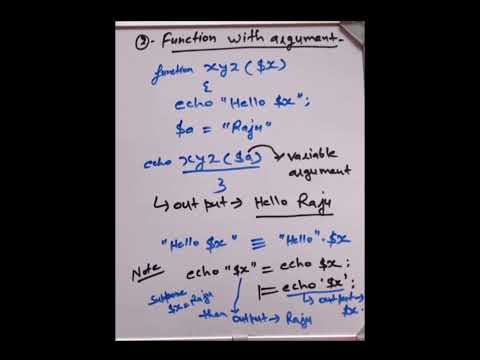 ③- Function with argument-
function xyz ($x)
{
echo "Hello $x";
$a = "Raju"
echo xyz ($a) → variable argument
}
↳ out put → Hello Raju
"Hello $x" ≡ "Hello".$x
Note echo "$x" = echo $x;
|= echo '$x';
Suppose $x=Raju
↳ output → $x.
then output → Raju